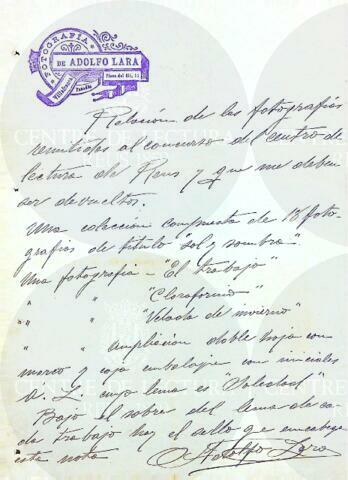 FOTOGRAFÍA
DE ADOLFO LARA
Plaza del Cid, 11
Villalonso
Relación de las fotografías
remitidas al concurso del centro de
lectura de Reus y que me deben
ser devueltos.
Una coleccion compuesta de 18 foto-
grafias de titulo "Sol y sombra"
Una fotografia - "El trabajo"
" " "Cloroformo"
" " "Velada de invierno"
" " ampliacion doble hoja con
marco y caja embalaje con iniciales
A. L. cuyo lema es "Soledad"
Bajo el sobre del lema de ca-
da trabajo hay el sello que encabeza
esta nota
Adolfo Lara
CENTRE DE LECTURA